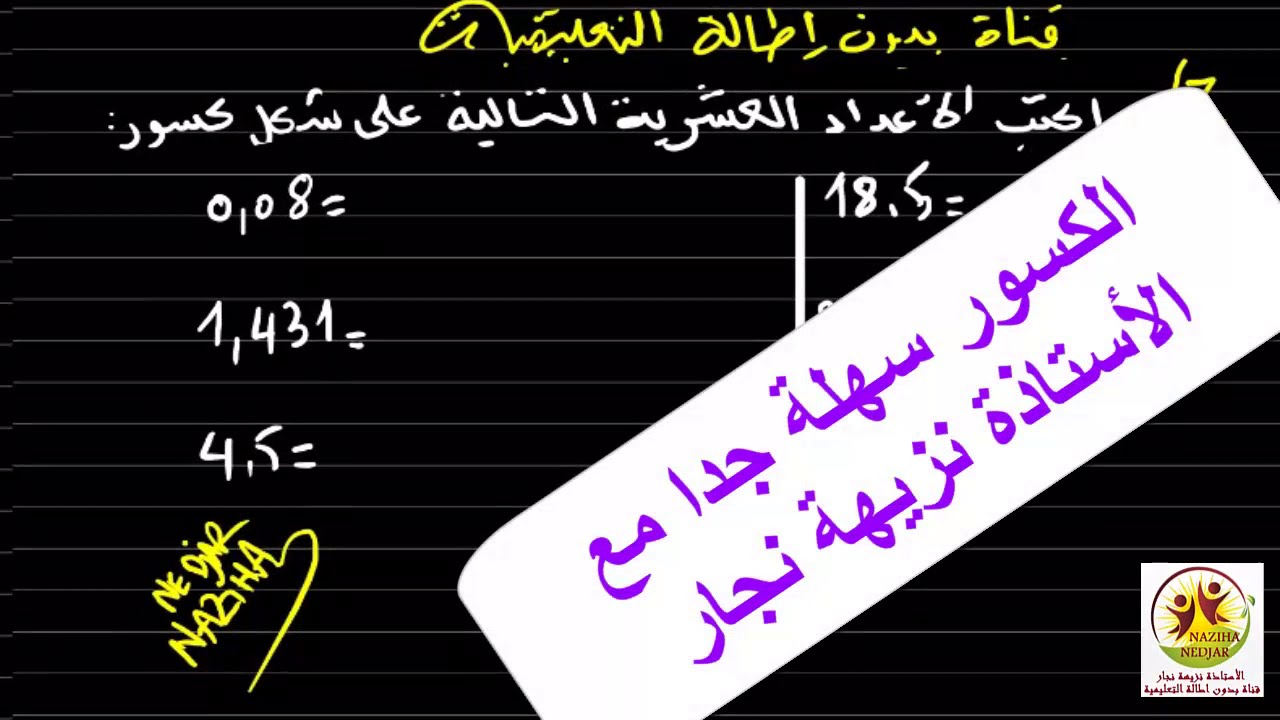 قناة بدون إطالة التعليمية
اكتب الأعداد العشرية التالية على شكل كسور:
18.5=
0,08=
1,431=
4,5=
الكسور سهلة جدا مع
الأستاذة نزيهة نجار
NEDJAR
NAZIHA
NAZIHA
NEDJAR
الأستاذة نزيهة نجار
قناة بدون اطالة التعليمية